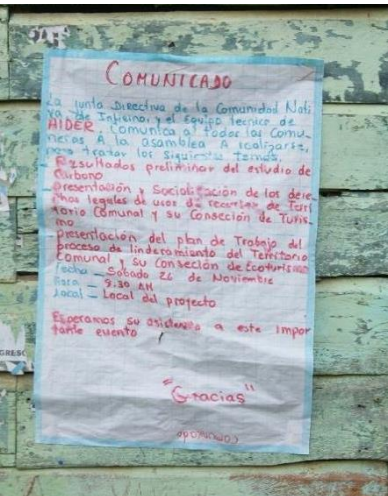 COMUNICADO
La Junta Directiva de la Comunidad Nati
va de Infierno, y el Equipo tecnico de
AIDER, Comunica a todos los Comu-
neros A la asamblea A realizarse,
para tratar los siguientes temas.
- Resultados preliminar del estudio de
Carbono
- presentación y Socialización de los dere-
chos legales de usos de recursos de Terri
torio Comunal y su Conseción de Turis-
mo
- presentación del plan de Trabajo del
proceso de linderamiento del Territorio
Comunal y su Conseción de Ecoturismo
fecha - Sabado 26 de Noviembre
Hora - 9.30 AM
Local - Local del proyecto
Esperamos su asistencia a este Impor
tante evento
"Gracias"
GRESO